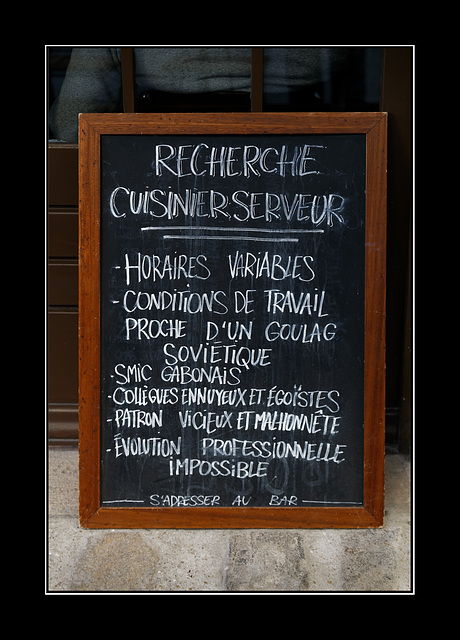 RECHERCHE
CUISINIER, SERVEUR
- HORAIRES VARIABLES
- CONDITIONS DE TRAVAIL
PROCHE D'UN GOULAG
SOVIÉTIQUE
- SMIC GABONAIS
- COLLÈGUES ENNUYEUX ET ÉGOÏSTES
- PATRON VICIEUX ET MALHONNÊTE
- ÉVOLUTION PROFESSIONNELLE
IMPOSSIBLE
S'ADRESSER AU BAR